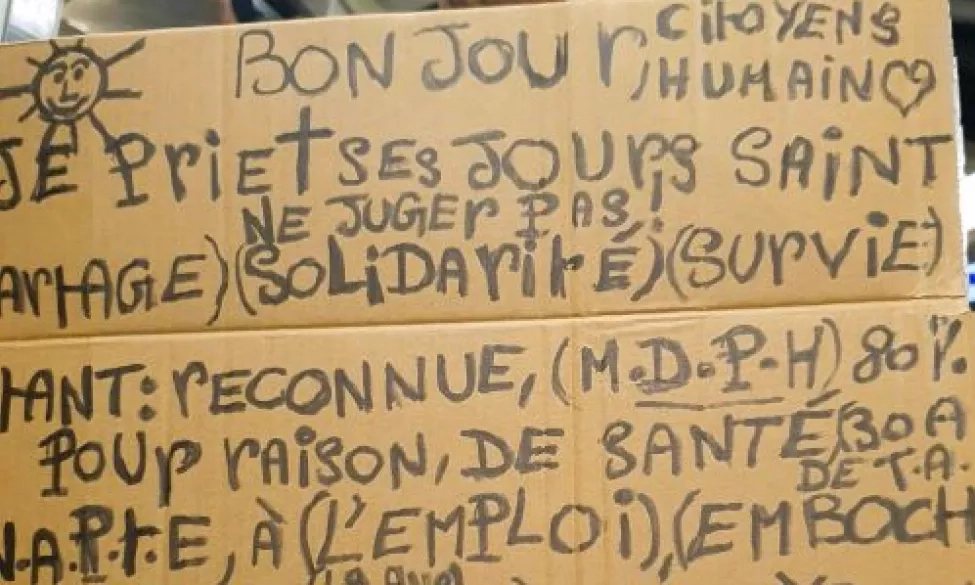 BONJOUR, CITOYENS
HUMAIN
JE PRIET SES JOURS SAINT
NE JUGER PAS,
ARTAGE) (SOLIDARITÉ) (SURVIE)
HANT: RECONNUE, (M.D.P.H) 80%.
POUR RAISON, DE SANTÉ,
DE T.A.
N.A.P.T.E, À (L'EMPLOI), (EMBOCH